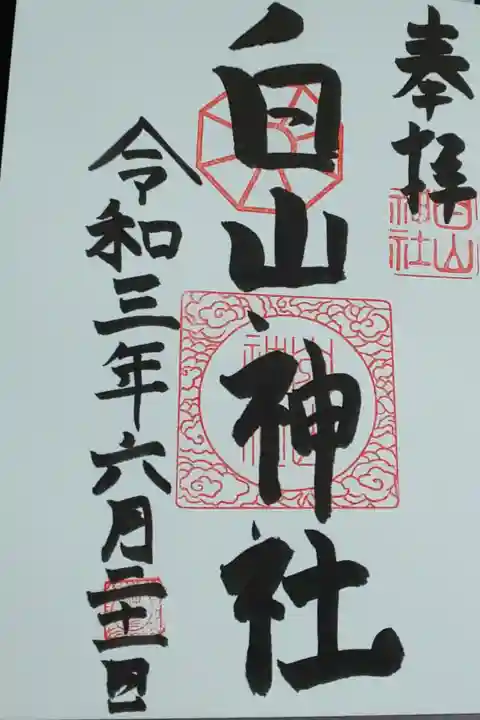 奉拝
白山神社
白山神社
令和三年六月二十一日